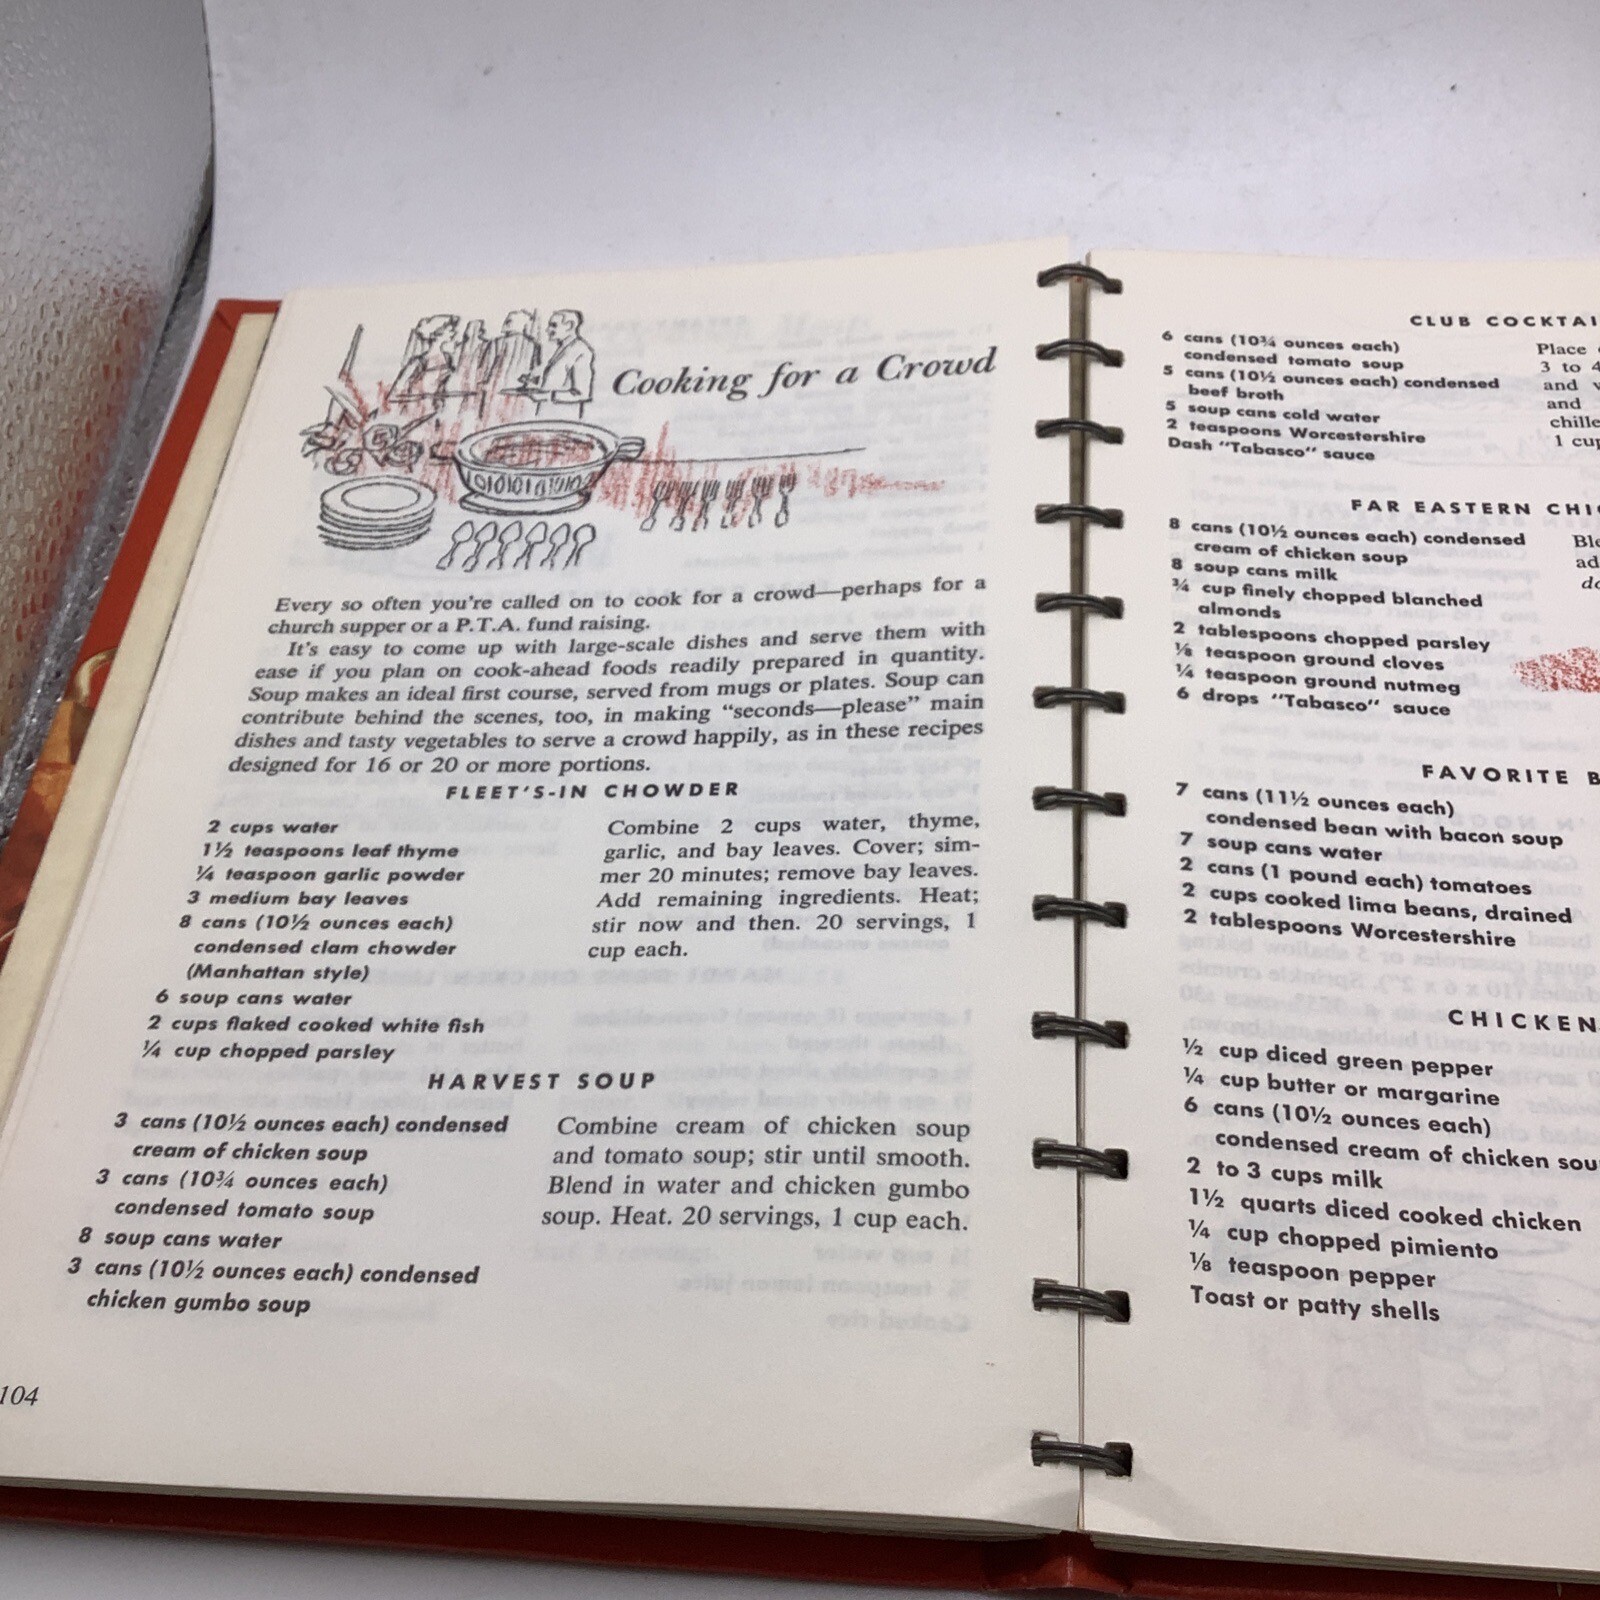 Cooking for a Crowd
Every so often you're called on to cook for a crowd—perhaps for a
church supper or a P.T.A. fund raising.
It's easy to come up with large-scale dishes and serve them with
ease if you plan on cook-ahead foods readily prepared in quantity.
Soup makes an ideal first course, served from mugs or plates. Soup can
contribute behind the scenes, too, in making "seconds—please" main
dishes and tasty vegetables to serve a crowd happily, as in these recipes
designed for 16 or 20 or more portions.
FLEET'S-IN CHOWDER
2 cups water
1½ teaspoons leaf thyme
¼ teaspoon garlic powder
3 medium bay leaves
8 cans (10½ ounces each)
condensed clam chowder
(Manhattan style)
6 soup cans water
2 cups flaked cooked white fish
¼ cup chopped parsley
Combine 2 cups water, thyme,
garlic, and bay leaves. Cover; sim-
mer 20 minutes; remove bay leaves.
Add remaining ingredients. Heat;
stir now and then. 20 servings, 1
cup each.
HARVEST SOUP
3 cans (10½ ounces each) condensed
cream of chicken soup
3 cans (10¾ ounces each)
condensed tomato soup
8 soup cans water
3 cans (10½ ounces each) condensed
chicken gumbo soup
Combine cream of chicken soup
and tomato soup; stir until smooth.
Blend in water and chicken gumbo
soup. Heat. 20 servings, 1 cup each.
104
CLUB COCKTAI
6 cans (10¾ ounces each)
condensed tomato soup
5 cans (10½ ounces each) condensed
beef broth
5 soup cans cold water
2 teaspoons Worcestershire
Dash "Tabasco" sauce
Place
3 to 4
and
and
chille
1 cup
FAR EASTERN CHI
8 cans (10½ ounces each) condensed
cream of chicken soup
8 soup cans milk
¾ cup finely chopped blanched
almonds
2 tablespoons chopped parsley
⅛ teaspoon ground cloves
¼ teaspoon ground nutmeg
6 drops "Tabasco" sauce
Ble
ad
do
FAVORITE B
7 cans (11½ ounces each)
condensed bean with bacon soup
7 soup cans water
2 cans (1 pound each) tomatoes
2 cups cooked lima beans, drained
2 tablespoons Worcestershire
CHICKEN
½ cup diced green pepper
¼ cup butter or margarine
6 cans (10½ ounces each)
condensed cream of chicken sou
2 to 3 cups milk
1½ quarts diced cooked chicken
¼ cup chopped pimiento
⅛ teaspoon pepper
Toast or patty shells